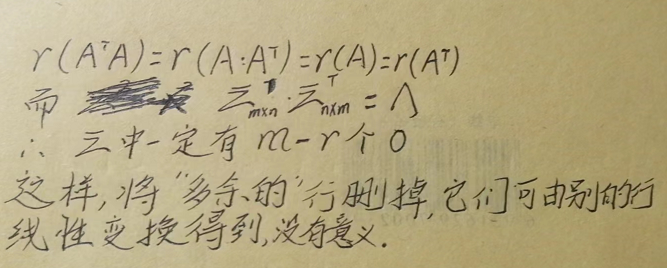 r(AᵀA)=r(A·Aᵀ)=r(A)=r(Aᵀ)
而 Σₘₓₙ·Σᵀₙₓₘ = Λ
∴ Σ中一定有 m-r 个 0
这样,将"多余的"行删掉,它们可由别的行
线性变换得到,没有意义.